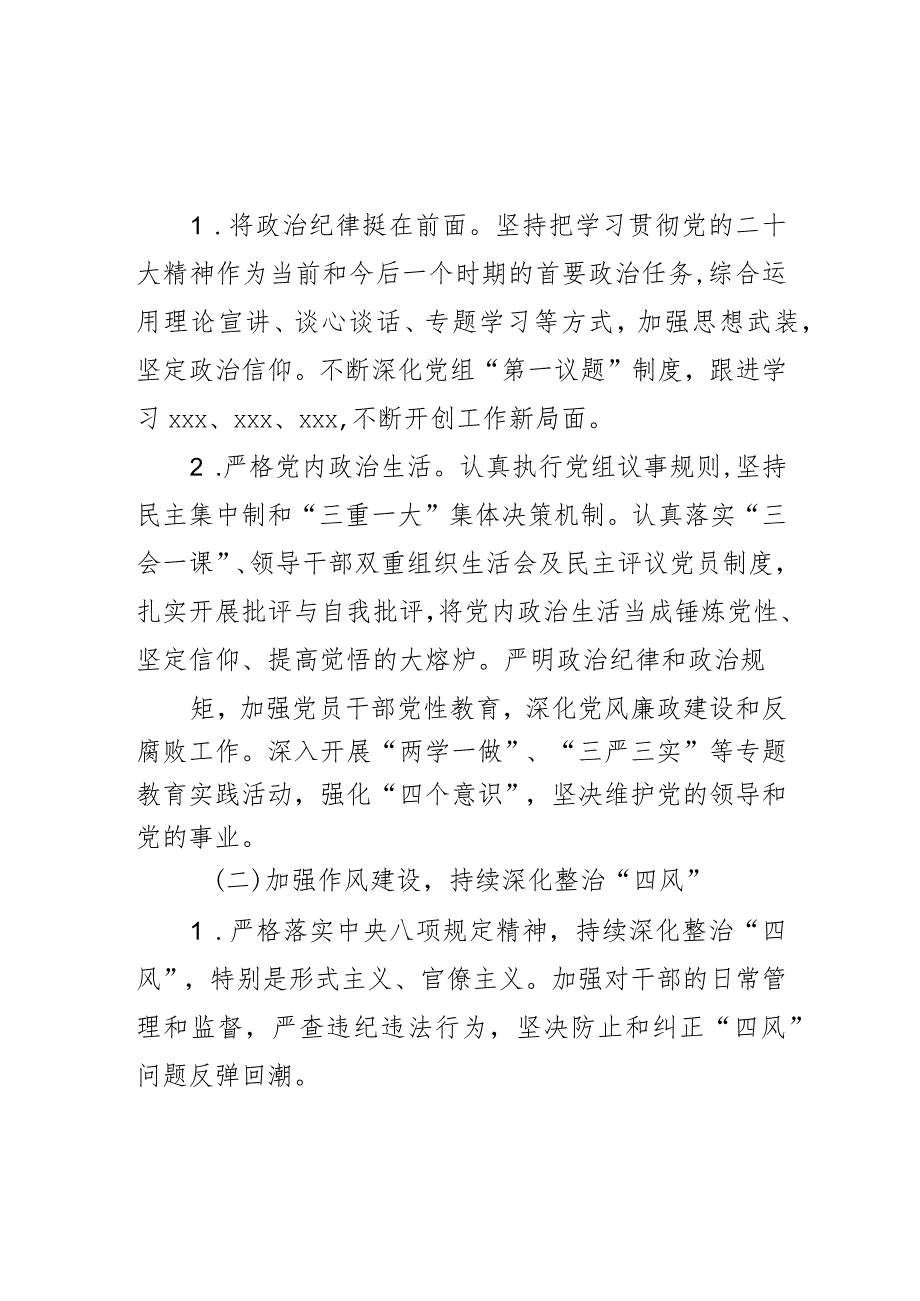 1 .将政治纪律挺在前面。坚持把学习贯彻党的二十
大精神作为当前和今后一个时期的首要政治任务,综合运
用理论宣讲、谈心谈话、专题学习等方式，加强思想武装，
坚定政治信仰。不断深化党组“第一议题”制度，跟进学
习 xxx、xxx、xxx,不断开创工作新局面。
2 .严格党内政治生活。认真执行党组议事规则,坚持
民主集中制和“三重一大”集体决策机制。认真落实“三
会一课”、领导干部双重组织生活会及民主评议党员制度，
扎实开展批评与自我批评,将党内政治生活当成锤炼党性、
坚定信仰、提高觉悟的大熔炉。严明政治纪律和政治规
矩，加强党员干部党性教育，深化党风廉政建设和反
腐败工作。深入开展“两学一做”、“三严三实”等专题
教育实践活动，强化“四个意识”，坚决维护党的领导和
党的事业。
(二)加强作风建设，持续深化整治“四风”
1 .严格落实中央八项规定精神，持续深化整治“四
风”，特别是形式主义、官僚主义。加强对干部的日常管
理和监督，严查违纪违法行为，坚决防止和纠正“四风”
问题反弹回潮。